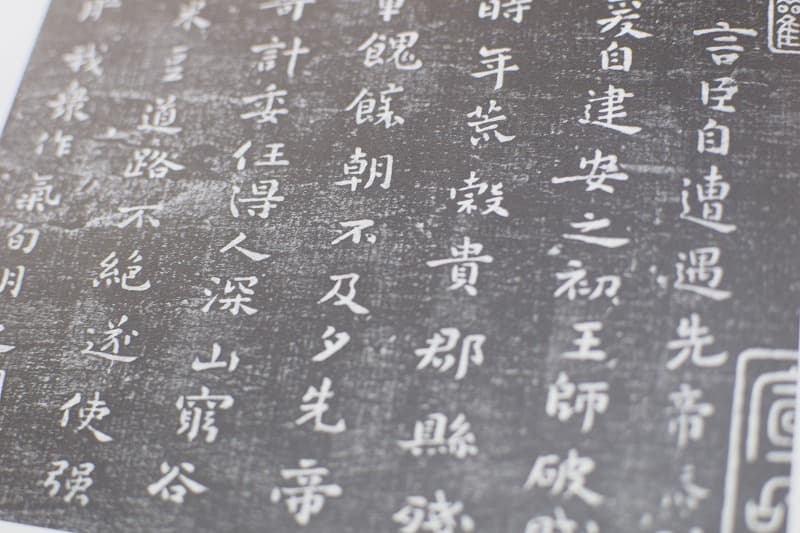 言臣自遭遇先帝
爰自建安之初王師破
時年荒穀貴郡縣殘
軍餽饟朝不及夕先帝
奇計委任得人深山窮谷
米豆道路不絕遂使强
我衆作氣旬月